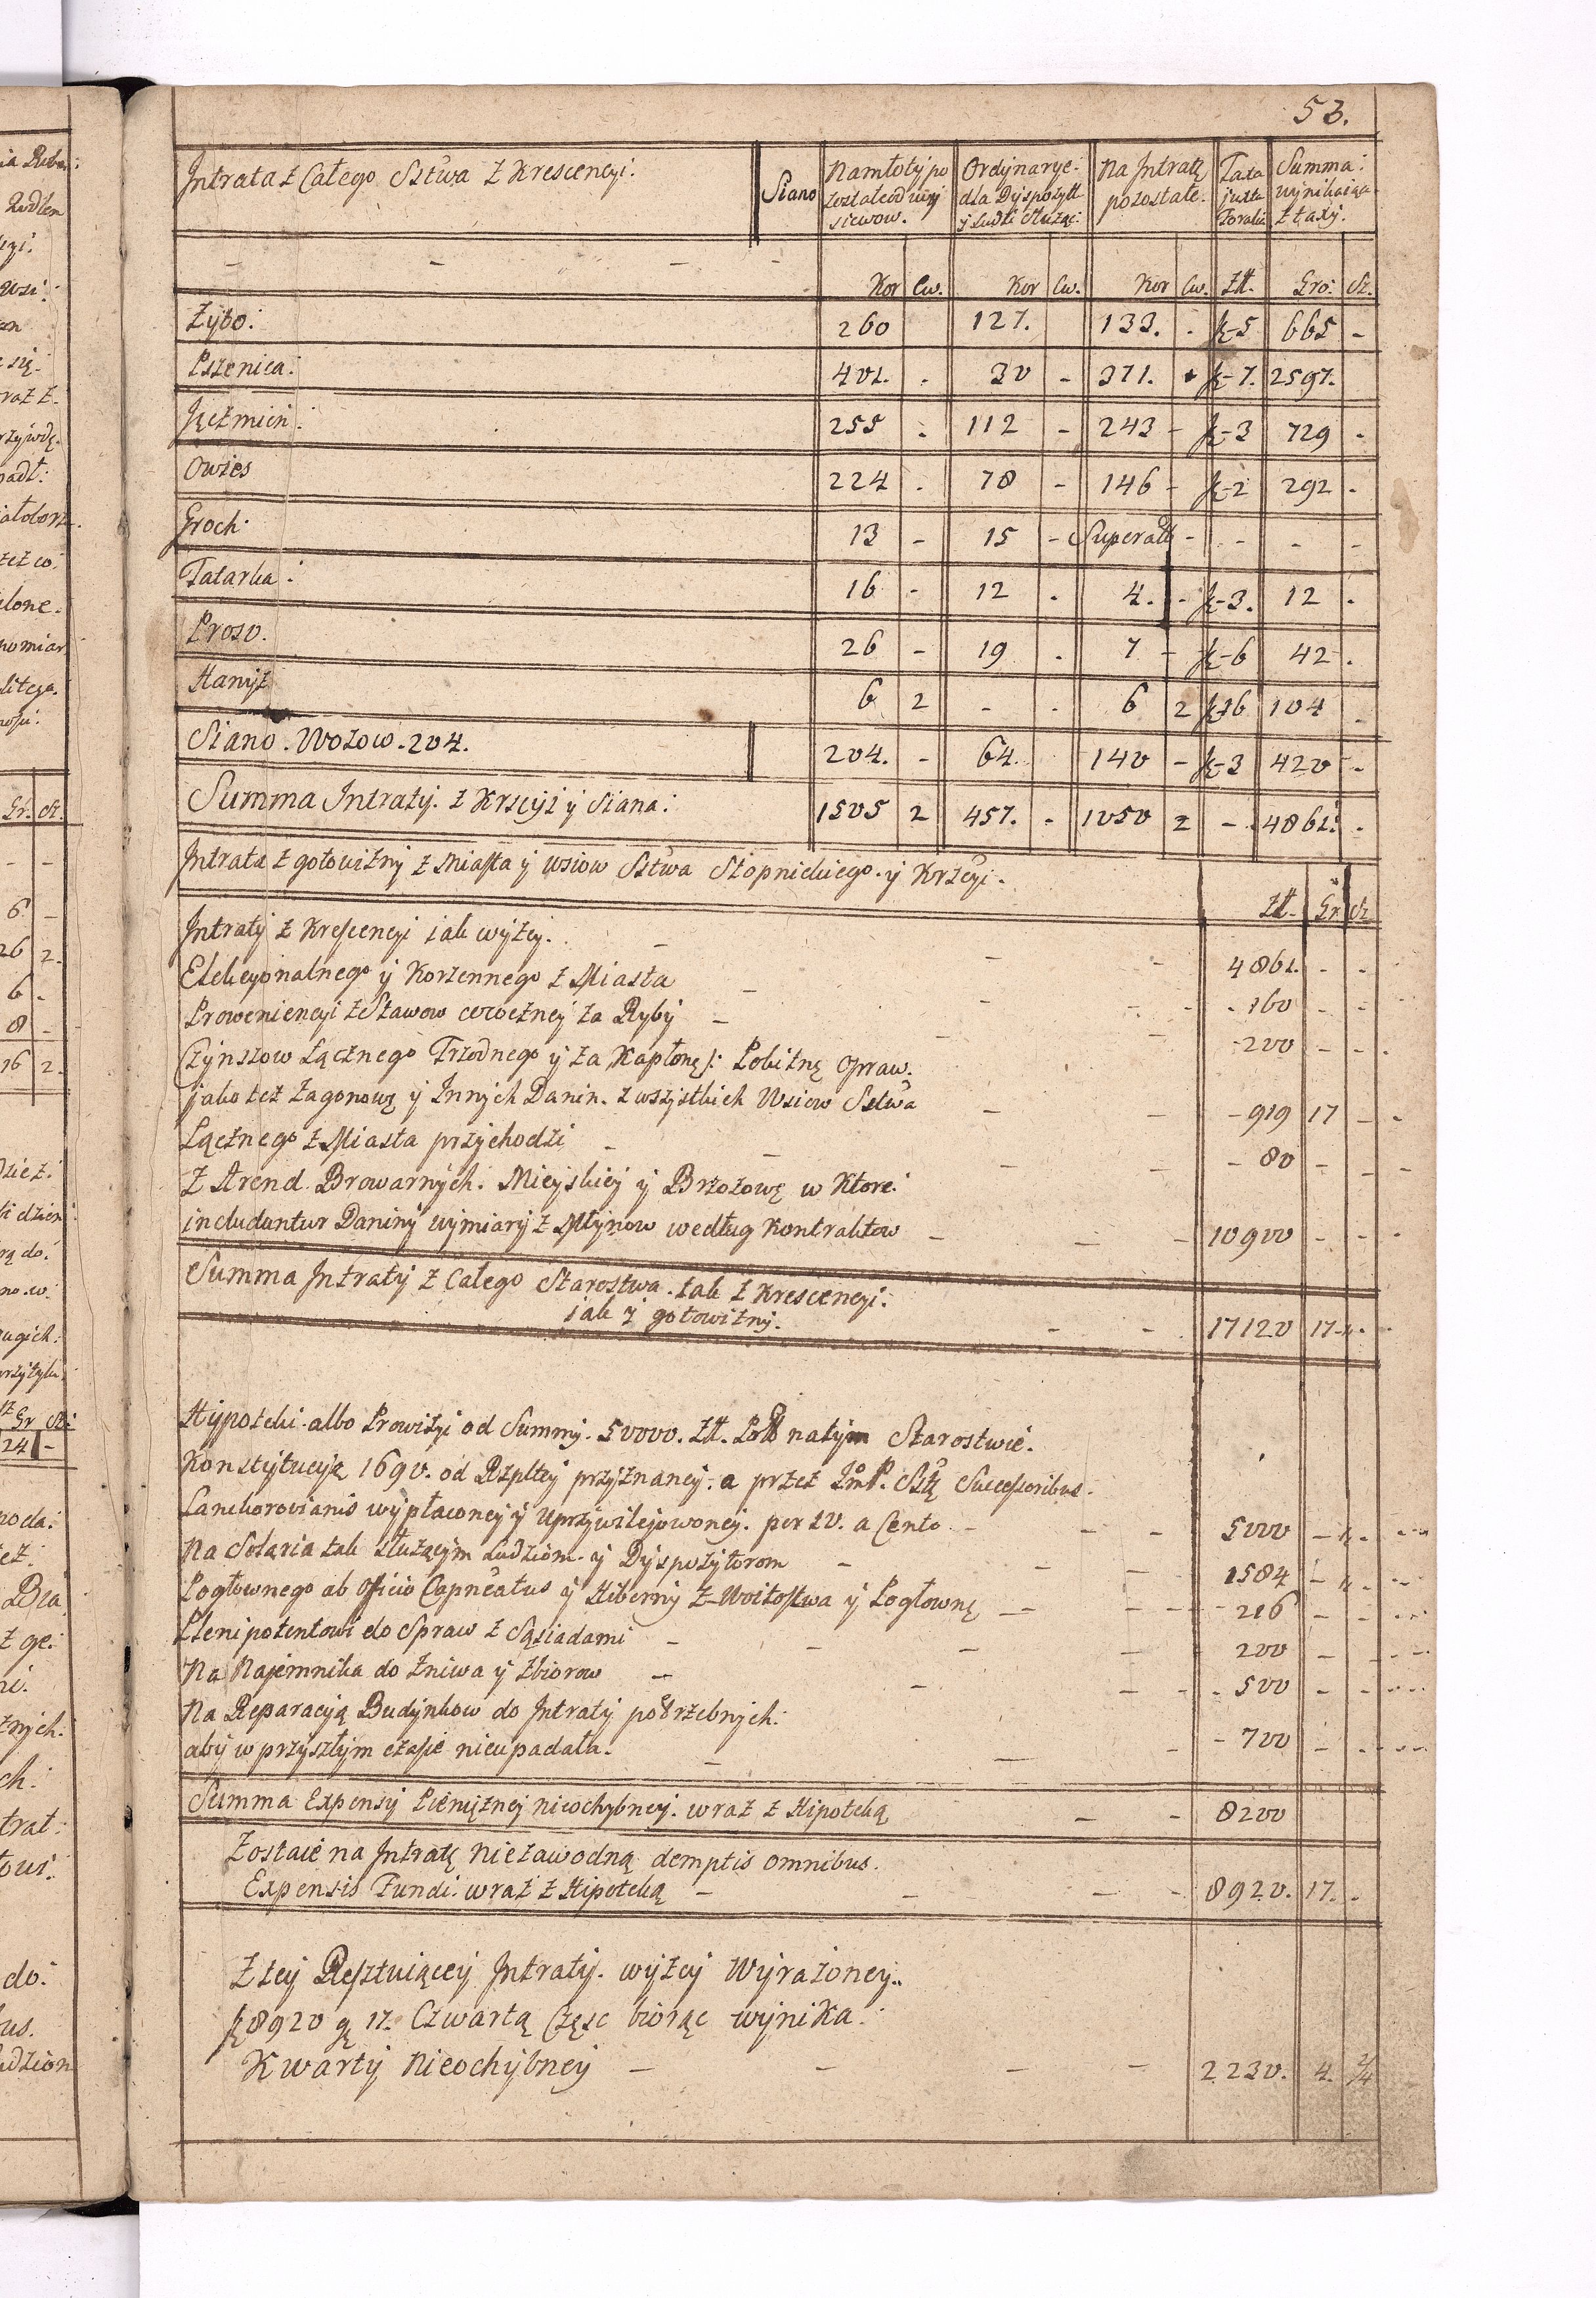 53.
Intrata z Całego Sttwa z Krescencyi: Siano Namłoty po zostałe od wsij siewow. Ordynarye: dla Dyspozytt y Ludzi służąc: Na Intratę pozostałe. Taxa juxta Foralia Summa: wynikaiąca z taxy.
- - - - Kor Cw. Kor Cw. Kor Cw. Zł. Gro: Sz.
Zyto: 260 127. 133. . f-5 665 -
Pszenica: 401. . 30 - 371. . f-7. 2597.
Jęczmień: 255 . 112 - 243 - f-3 729 .
Owies 224 . 78 - 146 - f-2 292 .
Groch 13 - 15 - Superatt - - - -
Tatarka: 16 - 12 . 4. - f-3. 12 .
Proso. 26 - 19 . 7 - f-6 42 .
Hanyz 6 2 - . 6 2 f16 104 -
Siano. Wozow. 204. 204. - 64. 140 - f-3 420 -
Summa Intraty. z Krscyi y Siana: 1505 2 457. - 1050 2 - 4861: .
Intrata z gotowizny z Miasta y wsiow Sttwa Stopnickiego. y Krzcyi.
Zł. Gr Sz
Intraty z Krescencyi iak wyżey. - - - 4861. - -
Elekcyonalnego y Korzennego z Miasta - - - 160 - -
Proweniencyi z Stawow corocznej za Ryby - - - 200 - - .
Czynszow Łącznego Trzodnego y za Kapłonę: Robiznę opraw.
jako też zagonową y Innych Danin. z wszystkich Wsiow Sttwa - - - 919 17 - -
Łącznego z Miasta przychodzi - - - - 80 - - -
Z Arend Browarnych. Mieyskiey y Brzozowę w Ktore:
includuntur Daniny wymiary z Młynow według Kontraktow - - - 10900 - - -
Summa Intraty z Całego Starostwa. tak z Krescencyi:
iak z gotowizny. - - 17120 17 - .
Hypoteki. albo Prowizyi od Summy. 50000. Zł. Pol na tym Starostwie.
Konstytucyą 1690. od Rzpltey przyznaney. a przez ImP. Sttę Successoribus.
Lanckorovianis wypłaconey y uprzywilejowoney. per 10. a Cento - - - 5000 - - .
Na Solaria tak służącym Ludziom. y Dyspozytorom - - - 1584 - - .
Pogłownego ab officio Capneatus y Hiberny z Woitostwa y Pogłownę - - - 216 - -
Plenipotentowi do Spraw z Sąsiadami - - - - 200 - -
Na Najemnika do żniwa y zbiorow - - - - 500 - -
Na Reparacyą Budynkow do Intraty potrzebnych:
aby w przyszłym czasie nieupadała. - - - - 700 - -
Summa Expensy Pieniężney nieochybney. wraz z Hipoteką - - 8200
Zostaie na Intratę niezawodną demptis omnibus.
Expensis Fundi. wraz z Hipoteką - - - - 8920. 17. .
Z tey Resztuiącey Intraty. wyżey Wyrażoney.
f 8920 g 17. Czwartą Częsc biorąc wynika:
Kwarty nieochybney - - - - 2230. 4. 2/4